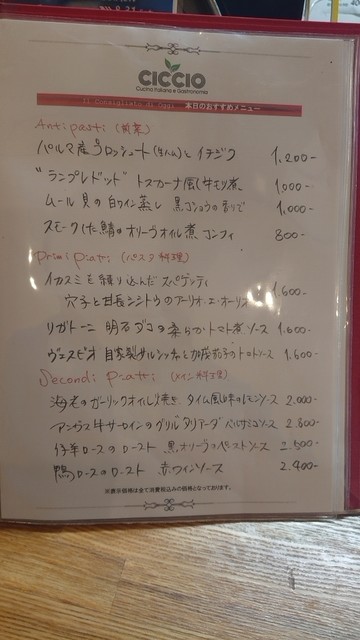 CICCIO
Cucina Italiana e Gastronomia
本日のおすすめメニュー
Antipasti (前菜)
パルマ産プロシュート(生ハム)と イチジク 1,200-
"ランプレドット" トスカーナ風牛モツ煮 1,000-
ムール貝の白ワイン蒸し 黒コショウの香りで 1,000-
スモークした鯖のオリーヴオイル煮 コンフィ 800-
Primi piatti (パスタ料理)
イカスミを練り込んだ スパゲッティ
穴子と甘長シシトウのアーリオ・エ・オーリオ 1,600-
リガトーニ 明石ダコの柔らかトマト煮ソース 1,600-
ヴェスビオ 自家製サルシッチャと加茂茄子のトマトソース 1,600-
Secondi piatti (メイン料理)
海老のガーリックオイル焼き タイム風味のレモンソース 2,000-
アンガス牛サーロインのグリル タリアータ バルサミコソース 2,800-
仔羊ロースのロースト 黒オリーヴのペーストソース 2,500-
鴨ロースのロースト 赤ワインソース 2,400-
※表示価格は全て消費税込みの価格となっております。